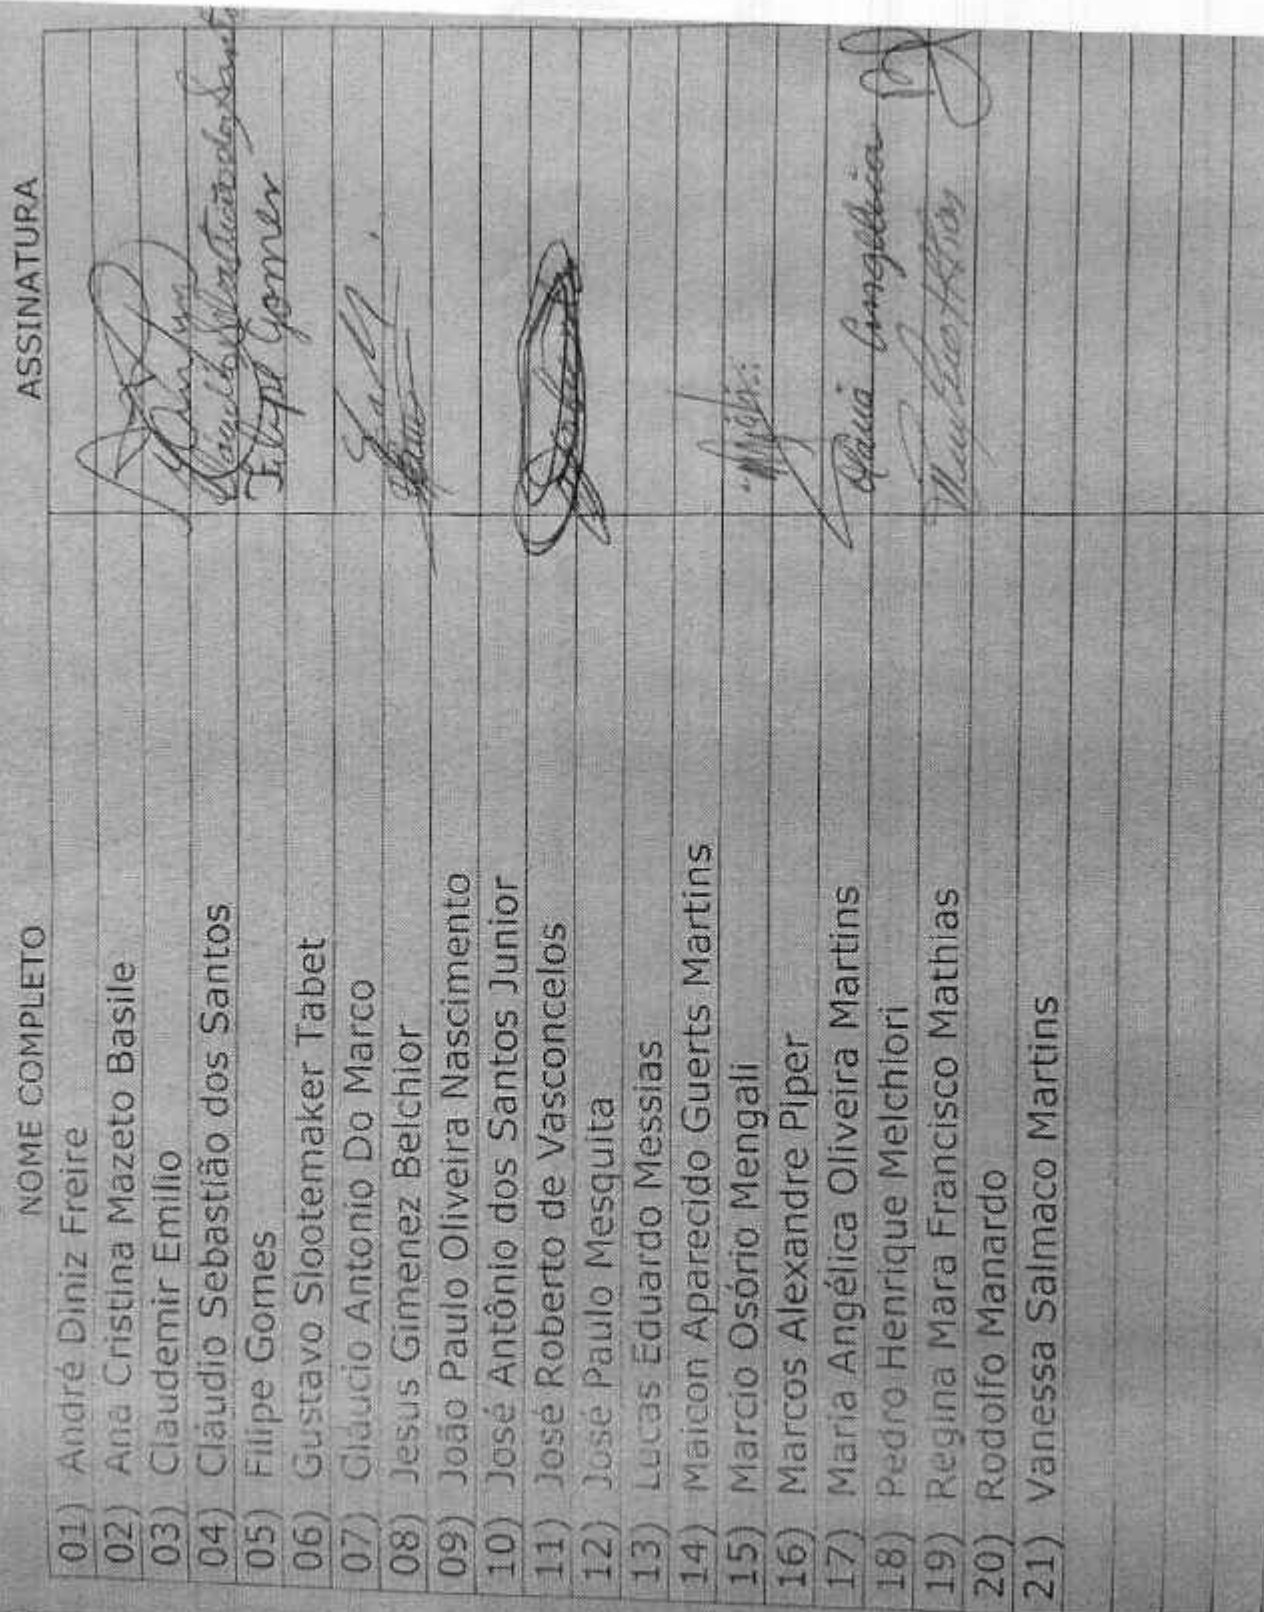 NOME COMPLETO ASSINATURA
01) André Diniz Freire
02) Ana Cristina Mazeto Basile
03) Claudemir Emilio
04) Cláudio Sebastião dos Santos Cláudio Sebastião dos Santos
05) Filipe Gomes Filipe Gomes
06) Gustavo Slootemaker Tabet
07) Gláucio Antonio Do Marco
08) Jesus Gimenez Belchior
09) João Paulo Oliveira Nascimento
10) José Antônio dos Santos Junior
11) José Roberto de Vasconcelos
12) José Paulo Mesquita
13) Lucas Eduardo Messias
14) Maicon Aparecido Guerts Martins
15) Marcio Osório Mengali
16) Marcos Alexandre Piper
17) Maria Angélica Oliveira Martins Maria Angélica
18) Pedro Henrique Melchiori
19) Regina Mara Francisco Mathias
20) Rodolfo Manardo
21) Vanessa Salmaco Martins